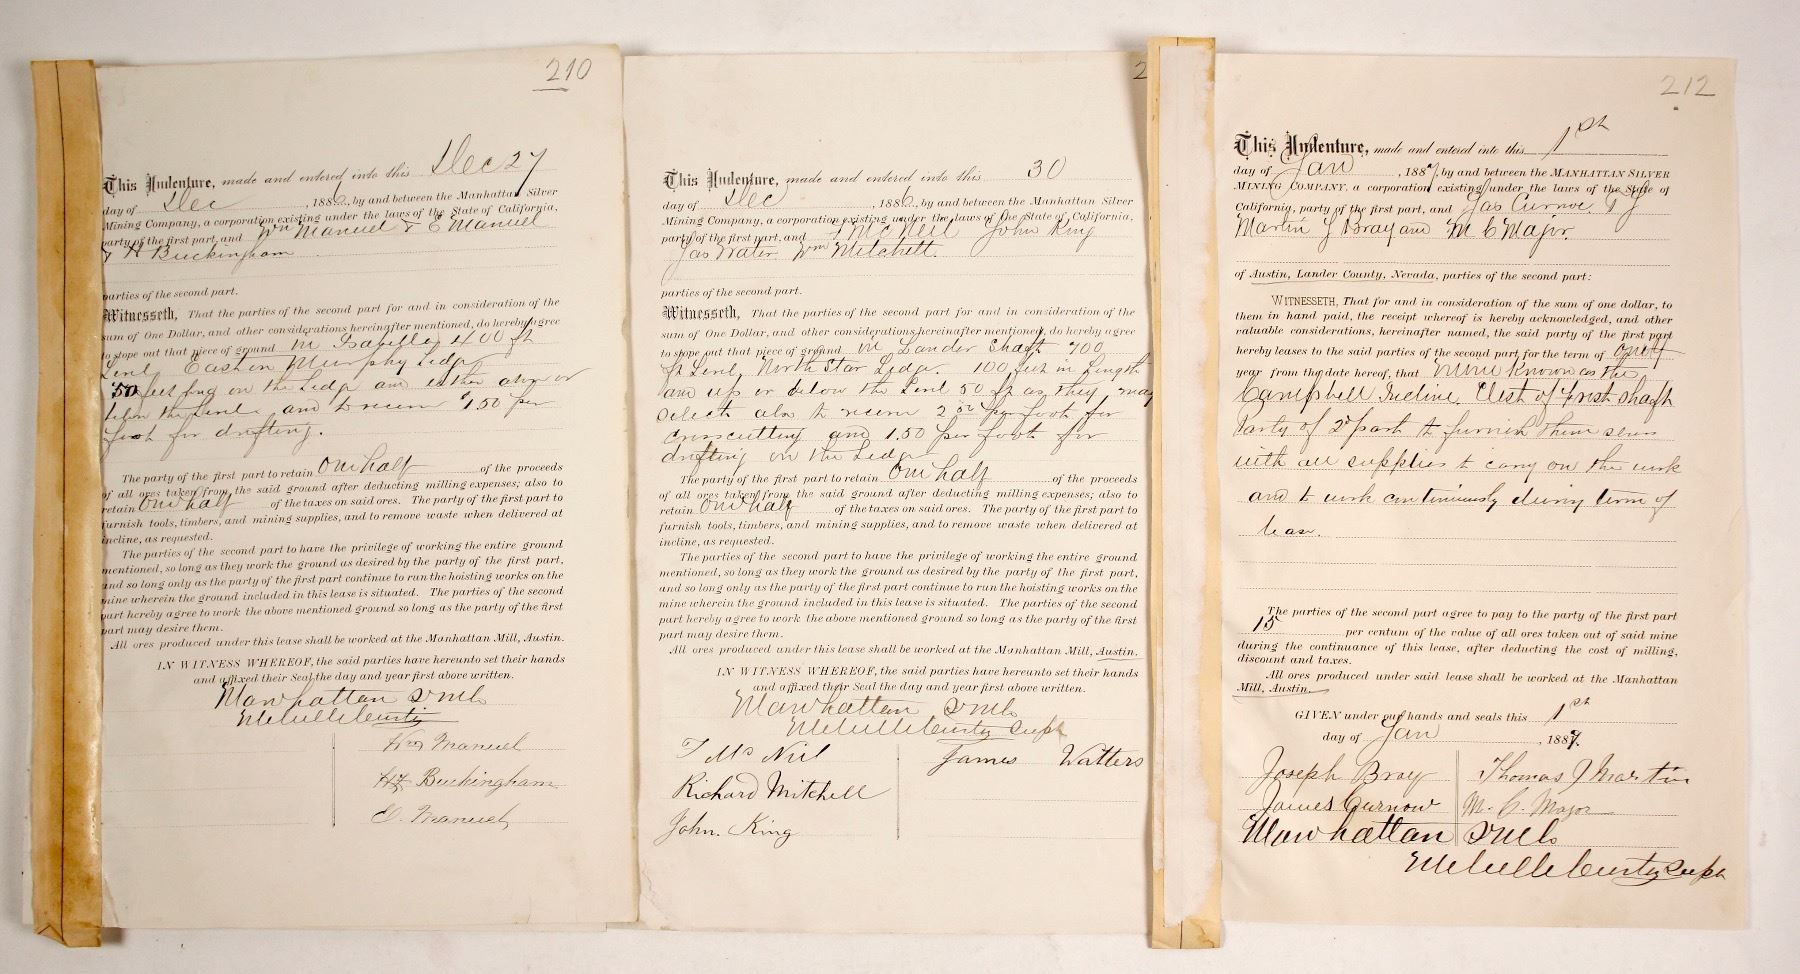 210
This Indenture, made and entered into this Dec 27
day of Dec , 1886, by and between the Manhattan Silver
Mining Company, a corporation existing under the laws of the State of California,
party of the first part, and Wm Manuel & E Manuel
& H Buckingham
parties of the second part.
Witnesseth, That the parties of the second part for and in consideration of the
sum of One Dollar, and other considerations hereinafter mentioned, do hereby agree
to stope out that piece of ground in 400 ft
Level East on Murphy Ledge
50 feet long on the Ledge and either above or
below the Level and to receive $1.50 per
foot for drifting.
The party of the first part to retain One half of the proceeds
of all ores taken from the said ground after deducting milling expenses; also to
retain One half of the taxes on said ores. The party of the first part to
furnish tools, timbers, and mining supplies, and to remove waste when delivered at
incline, as requested.
The parties of the second part to have the privilege of working the entire ground
mentioned, so long as they work the ground as desired by the party of the first part,
and so long only as the party of the first part continue to run the hoisting works on the
mine wherein the ground included in this lease is situated. The parties of the second
part hereby agree to work the above mentioned ground so long as the party of the first
part may desire them.
All ores produced under this lease shall be worked at the Manhattan Mill, Austin.
IN WITNESS WHEREOF, the said parties have hereunto set their hands
and affixed their Seal the day and year first above written.
Manhattan S M Co
Melville Curtis
Wm Manuel
H Buckingham
E. Manuel
2
This Indenture, made and entered into this 30
day of Dec , 1886, by and between the Manhattan Silver
Mining Company, a corporation existing under the laws of the State of California,
party of the first part, and T McNeil John King
Jas Water Wm Mitchell.
parties of the second part.
Witnesseth, That the parties of the second part for and in consideration of the
sum of One Dollar, and other considerations hereinafter mentioned, do hereby agree
to stope out that piece of ground in Lander Shaft 700
ft Level North Star Ledge. 100 feet in length
and up or below the Level 50 ft as they may
select also to receive 2 50 per foot for
crosscutting and 1.50 per foot for
drifting on the Ledge
The party of the first part to retain One half of the proceeds
of all ores taken from the said ground after deducting milling expenses; also to
retain One half of the taxes on said ores. The party of the first part to
furnish tools, timbers, and mining supplies, and to remove waste when delivered at
incline, as requested.
The parties of the second part to have the privilege of working the entire ground
mentioned, so long as they work the ground as desired by the party of the first part,
and so long only as the party of the first part continue to run the hoisting works on the
mine wherein the ground included in this lease is situated. The parties of the second
part hereby agree to work the above mentioned ground so long as the party of the first
part may desire them.
All ores produced under this lease shall be worked at the Manhattan Mill, Austin.
IN WITNESS WHEREOF, the said parties have hereunto set their hands
and affixed their Seal the day and year first above written.
Manhattan S M Co
Melville Curtis Supt
T McNeil James Watters
Richard Mitchell
John King
212
This Indenture, made and entered into this 1st
day of Jan , 1887, by and between the MANHATTAN SILVER
MINING COMPANY, a corporation existing under the laws of the State of
California, party of the first part, and Jas Curnow. T J
Martin J Bray and M C Major.
of Austin, Lander County, Nevada, parties of the second part:
WITNESSETH, That for and in consideration of the sum of one dollar, to
them in hand paid, the receipt whereof is hereby acknowledged, and other
valuable considerations, hereinafter named, the said party of the first part
hereby leases to the said parties of the second part for the term of one
year from the date hereof, that mine known as the
Campbell Incline. West of Frost shaft
Party of 2d part to furnish them selves
with all supplies to carry on the work
and to work continuously during term of
lease.
The parties of the second part agree to pay to the party of the first part
15 per centum of the value of all ores taken out of said mine
during the continuance of this lease, after deducting the cost of milling,
discount and taxes.
All ores produced under said lease shall be worked at the Manhattan
Mill, Austin.
GIVEN under our hands and seals this 1st
day of Jan , 1887.
Joseph Bray Thomas J Martin
James Curnow M. C. Major
Manhattan S M Co
Melville Curtis Supt